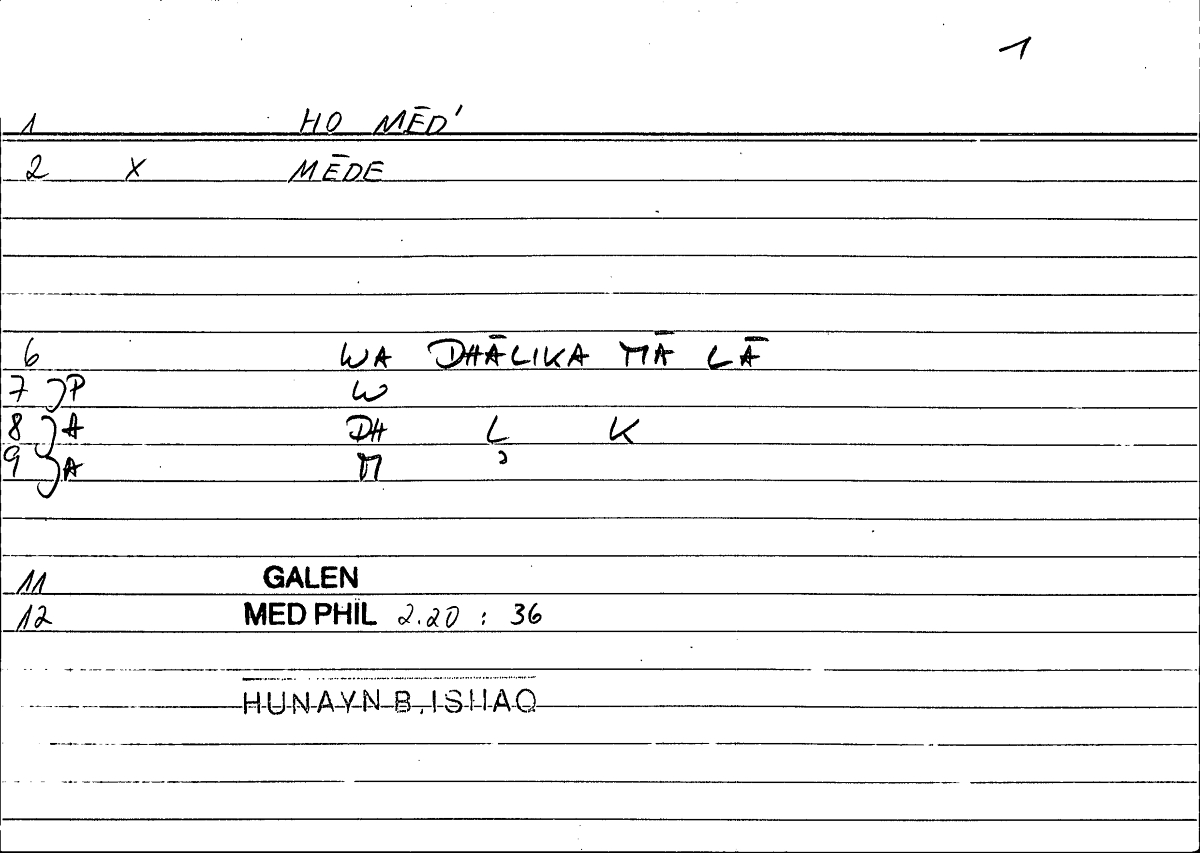 1
1 HO MĒD'
2 X MĒDE
6 WA DHĀLIKA MĀ LĀ
7 P W
8 A DH L K
9 A M ʾ
11 GALEN
12 MED PHIL 2.20 : 36
HUNAYN B. ISHAQ